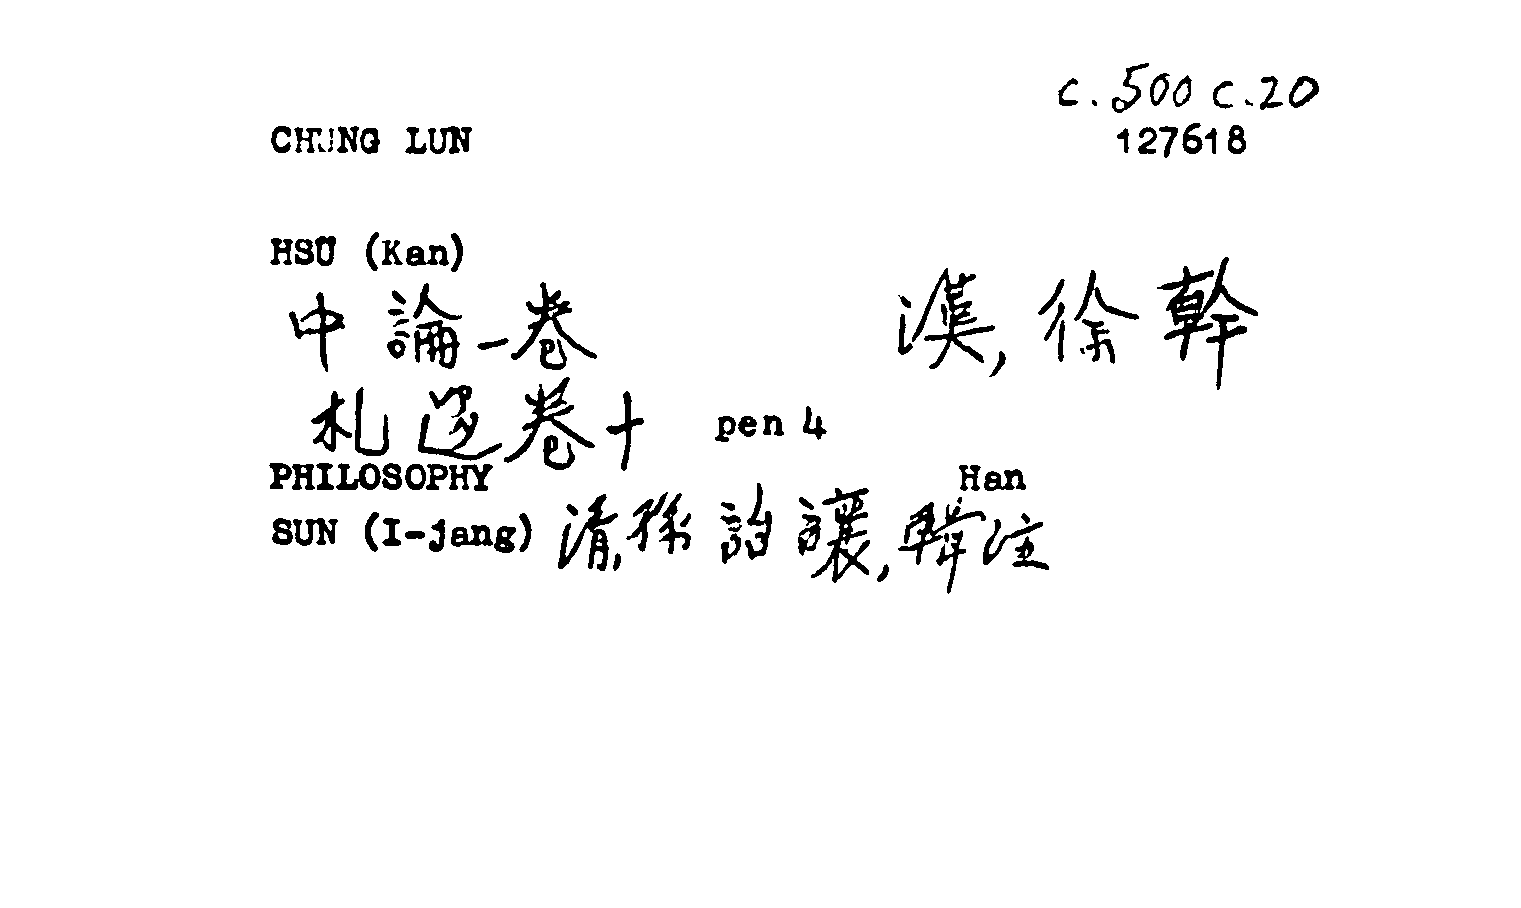 c.500 c.20
CHUNG LUN 127618
HSÜ (Kan)
中論一卷 漢,徐幹
札迻卷十 pen 4
PHILOSOPHY Han
SUN (I-jang) 清,孫詒讓,輯注